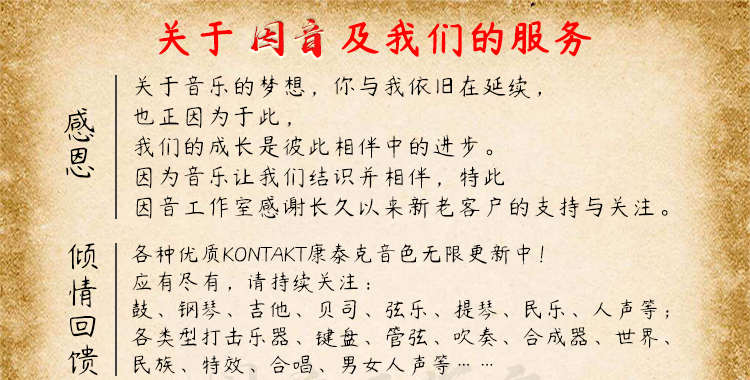 关于 因音 及我们的服务
感恩
关于音乐的梦想，你与我依旧在延续，
也正因为于此，
我们的成长是彼此相伴中的进步。
因为音乐让我们结识并相伴，特此
因音工作室感谢长久以来新老客户的支持与关注。
倾情回馈
各种优质KONTAKT康泰克音色无限更新中！
应有尽有，请持续关注：
鼓、钢琴、吉他、贝司、弦乐、提琴、民乐、人声等；
各类型打击乐器、键盘、管弦、吹奏、合成器、世界、
民族、特效、合唱、男女人声等……